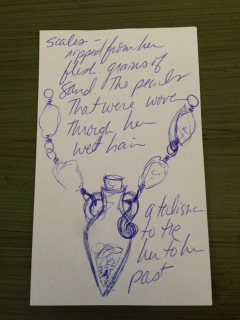 scales -
ripped from her
flesh grains of
sand The pearls
That were woven
Through her
wet hair
a talisman
to tie
her to her
past